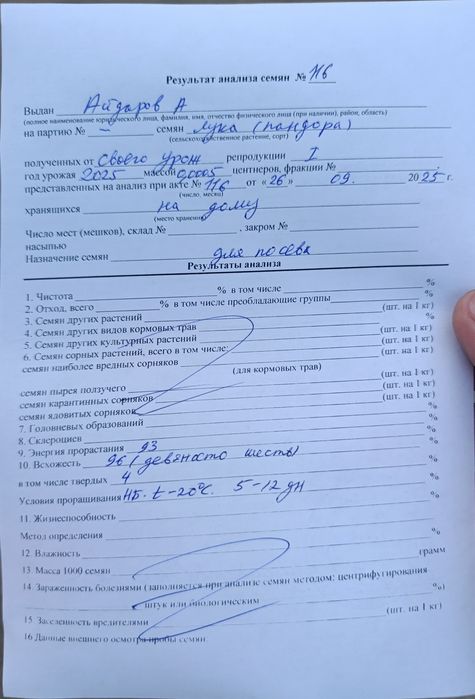 Результат анализа семян № 116
Выдан Айдаров А
(полное наименование юридического лица, фамилия, имя, отчество физического лица (при наличии), район, область)
на партию № — семян лука (пандора)
(сельскохозяйственное растение, сорт)
полученных от Своего урож репродукции I
год урожая 2025 массой 0,0005 центнеров, фракции №
представленных на анализ при акте № 116 от «26» 09. 2025 г.
(число, месяц)
хранящихся на дому
(место хранения)
Число мест (мешков), склад № , закром №
насыпью
Назначение семян для посева
Результаты анализа
1. Чистота % в том числе %
2. Отход, всего % в том числе преобладающие группы %
3. Семян других растений (шт. на 1 кг)
4. Семян других видов кормовых трав %
5. Семян других культурных растений (шт. на 1 кг)
6. Семян сорных растений, всего в том числе: (шт. на 1 кг)
семян наиболее вредных сорняков (шт. на 1 кг)
(для кормовых трав)
семян пырея ползучего (шт. на 1 кг)
семян карантинных сорняков (шт. на 1 кг)
семян ядовитых сорняков (шт. на 1 кг)
7. Головневых образований %
8. Склероциев %
9. Энергия прорастания 93 %
10. Всхожесть 96 (девяносто шесть) %
в том числе твердых 4 %
Условия проращивания НБ. t-20°С. 5-12 дн %
11. Жизнеспособность
Метод определения
12. Влажность %
13. Масса 1000 семян грамм
14 Зараженность болезнями (заполняется при анализе семян методом: центрифугирования
штук или биологическим %)
15 Заселенность вредителями (шт. на 1 кг)
16 Данные внешнего осмотра пробы семян